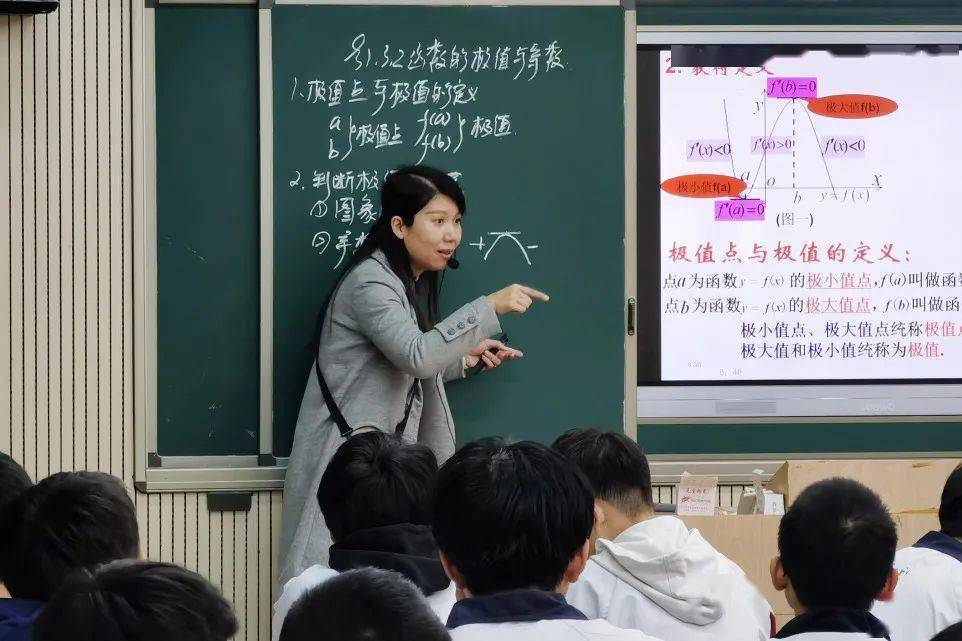 §1.3.2函数的极值与导数
1、极值点与极值的定义
a
b
}极值点
f(a)
f(b)
}极值
2、判断极
①图象
②
+ −
2. 获得定义
f′(b)=0
y
极大值f(b)
f′(x)<0
f′(x)>0
f′(x)<0
极小值f(a)
a
o
b
y=f(x)
x
f′(a)=0
(图一)
极值点与极值的定义：
点a为函数y=f(x)的极小值点,f(a)叫做函
点b为函数y=f(x)的极大值点，f(b)叫做函
极小值点、极大值点统称极值
极大值和极小值统称为极值.